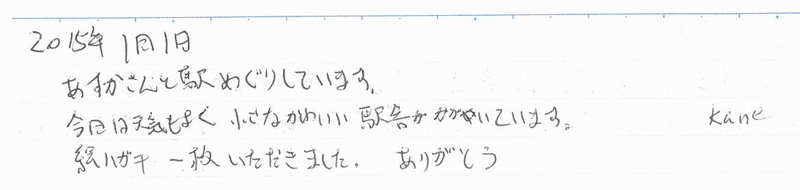 2015年1月1日
あすかさんと駅めぐりしています。
今日は天気もよく 小さなかわいい駅舎がかがやいています。 kane
絵ハガキ 一枚いただきました. ありがとう